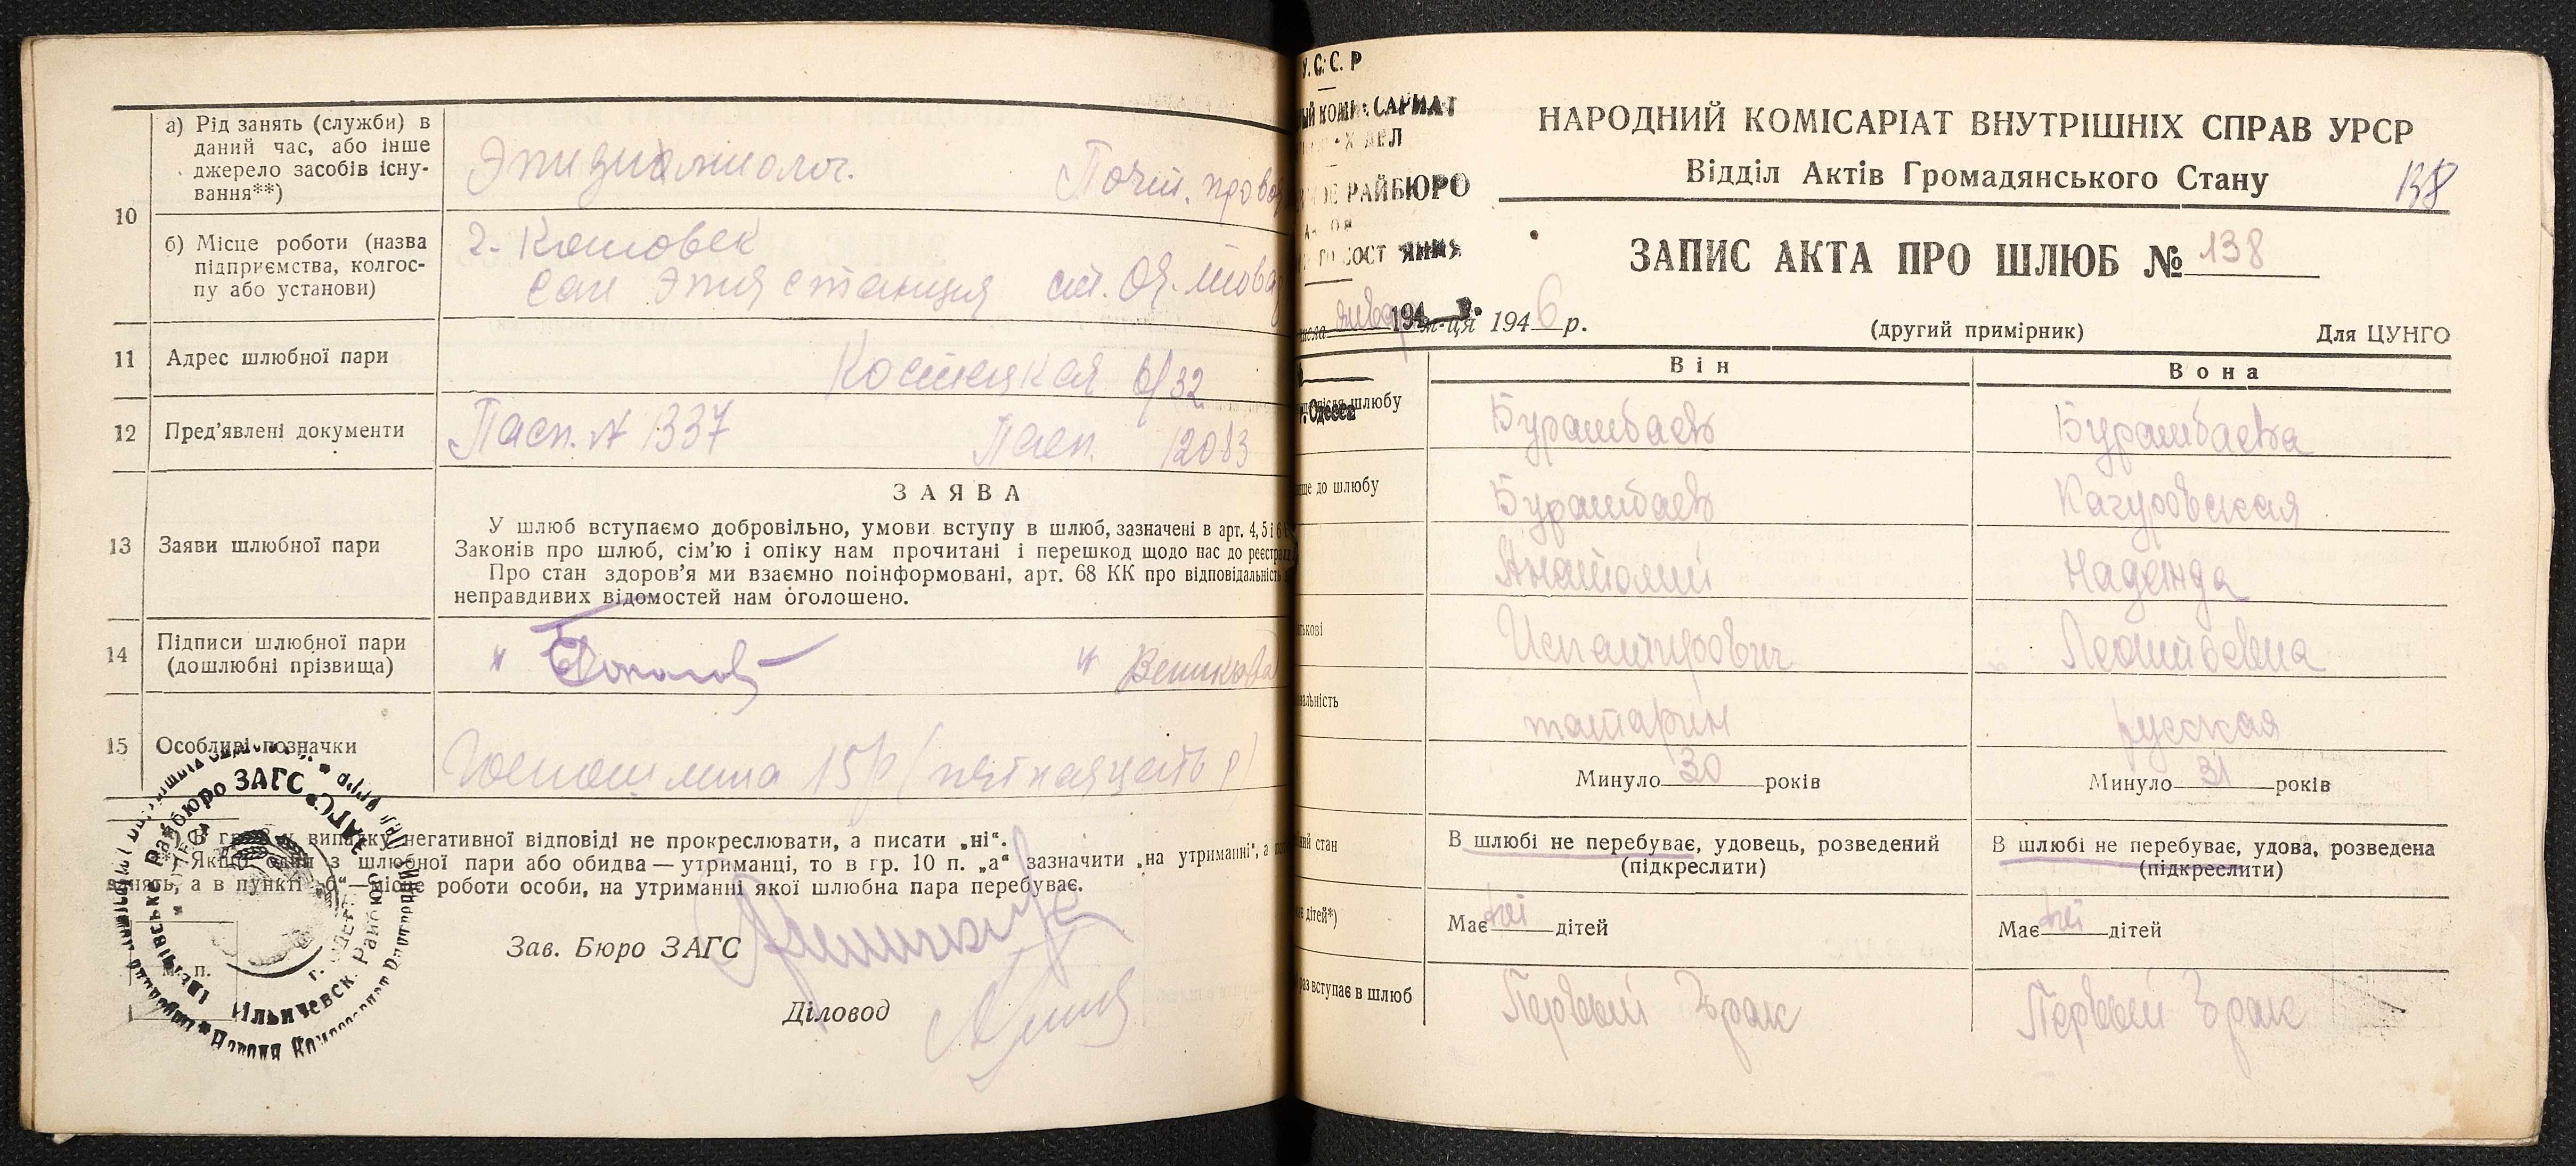 10
а) Рід занять (служби) в
даний час, або інше
джерело засобів існу-
вання**)
б) Місце роботи (назва
підприємства, колгос-
пу або установи)
сан эпид станция ст. Од. това
11 Адрес шлюбної пари
Костецкая 6/32
12 Пред'явлені документи
Пасп. № 1337 Пасп. 12083
13 Заяви шлюбної пари
ЗАЯВА
У шлюб вступаємо добровільно, умови вступу в шлюб, зазначені в арт. 4, 5 і 6
Законів про шлюб, сім'ю і опіку нам прочитані і перешкод щодо нас до реєстрац
Про стан здоров'я ми взаємно поінформовані, арт. 68 КК про відповідальність
неправдивих відомостей нам оголошено.
14 Підписи шлюбної пари
(дошлюбні прізвища)
15 Особливі позначки
Госпошлина 15р (пятнадцать р)
В гр. 9 у випадку негативної відповіді не прокреслювати, а писати „ні".
Якщо один з шлюбної пари або обидва — утриманці, то в гр. 10 п. „а" зазначити „на утриманні", а
занять, а в пункті „б" — місце роботи особи, на утриманні якої шлюбна пара перебуває.
м. п.
Зав. Бюро ЗАГС
Діловод
Райбюро ЗАГС
Ільичевск. Райбюро
У.С.С.Р
КОМИССАРИАТ
РАЙБЮРО
г. Одесса
НАРОДНИЙ КОМІСАРІАТ ВНУТРІШНІХ СПРАВ УРСР
Відділ Актів Громадянського Стану
138
ЗАПИС АКТА ПРО ШЛЮБ № 138
м-ця 1946 р.
(другий примірник)
Для ЦУНГО
Він Вона
після шлюбу
Бурашбаев Бурашбаева
до шлюбу
Бурашбаев Качуровская
Анатолий Надежда
Леонтьевна
татарин русская
Минуло 30 років Минуло 31 років
стан
В шлюбі не перебуває, удовець, розведений
(підкреслити)
В шлюбі не перебуває, удова, розведена
(підкреслити)
дітей*)
Має ні дітей Має ні дітей
раз вступає в шлюб
Первый брак Первый брак